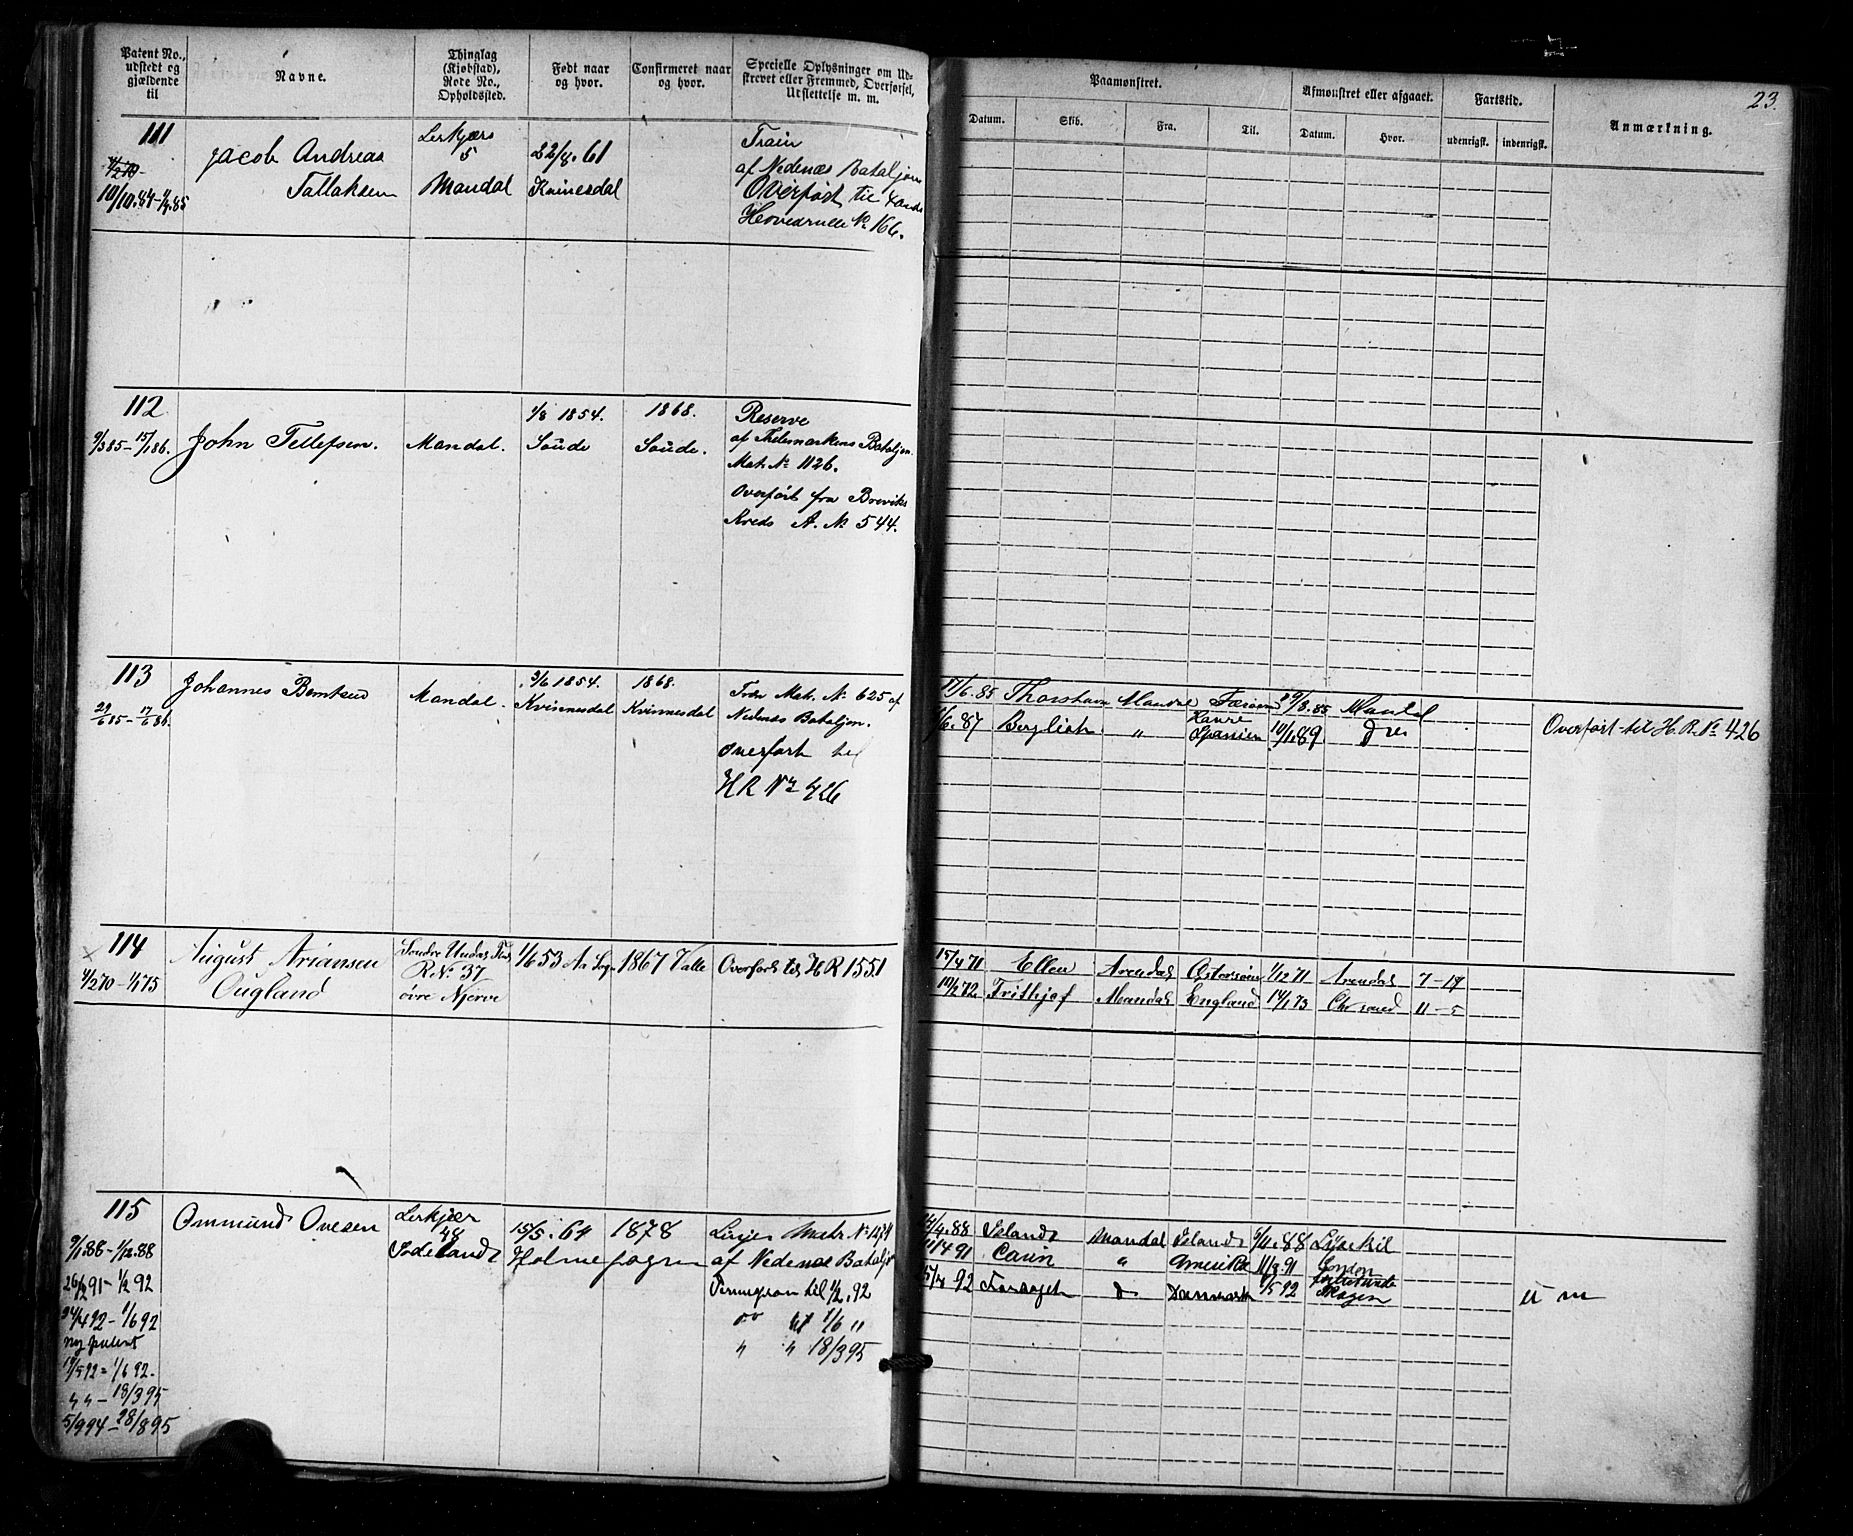 23.
Patent No., udstedt og gjældende til
Navne.
Thinglag (Kjøbstad), Rode No., Opholdssted.
Født naar og hvor.
Confirmeret naar og hvor.
Specielle Oplysninger om Udskrevet eller Fremmed, Overførsel, Udslettelse m. m.
Paamønstret.
Afmønstret eller afgaaet.
Fartstid.
Anmærkning.
Datum.
Skib.
Fra.
Til.
Datum.
Hvor.
udenrigsk.
indenrigsk.
111
10/10.84-1/4.85
Jacob Andreas
Tallaksen
5
Mandal
22/8.61
Kvinesdal
Train
af Nedenæs Bataljon
Overført til
Hovedrulle No 166.
112
9/3 85 - 15/1 86.
John Tellefsen.
Mandal.
1/8 1854.
Saude
1868.
Saude.
Reserve
af Thelemarkens Bataljon.
Mat. No 1126.
Overført fra Breviks
Kreds A. No 544.
113
29/6 85 - 17/6 86.
Johannes Berntsen
Mandal.
3/6 1854.
Kvinnesdal
1868.
Kvinnesdal
Mat. No 625 af
Nedenæs Bataljon.
Overført til
H R No 426
17/6.85 Thorshavn Mandal 29/8.85 Mandal
/6.87 Bergliot " Spanien 10/1 89
Overført til H. R. No 426
114
1/2 70 - 1/1 75
August Ariansen
Øugland
R No. 37
øvre Njerve
1/6 53
1867 Valle
Overført til H R 1551
15/4 71 Ellen Arendal Østersøen 1/12 71 Arendal 7-17
Frithjof Mandal England 14/1 73 Chrsand 11-5
115
9/1.88 - 1/12.88
26/2 91 - 1/2 92
24/4 92 - 1/6 92
ny patent
19/5 92 = 1/6 92.
" " - 18/3 95
5/9 94 - 28/8 95
Ommund Ovesen
48
15/5.64
Holme
1878
sogn
Linjen Matr. No 1274
af Nedenæs Bataljon
Permission til 1/2.92
til 1/6 "
" " 18/3 95
/4.88 Island Mandal Island 9/4.88 Lysekil
91 Carin " Amerika 11/3.91 London
92 Danmark /5 92 Skagen